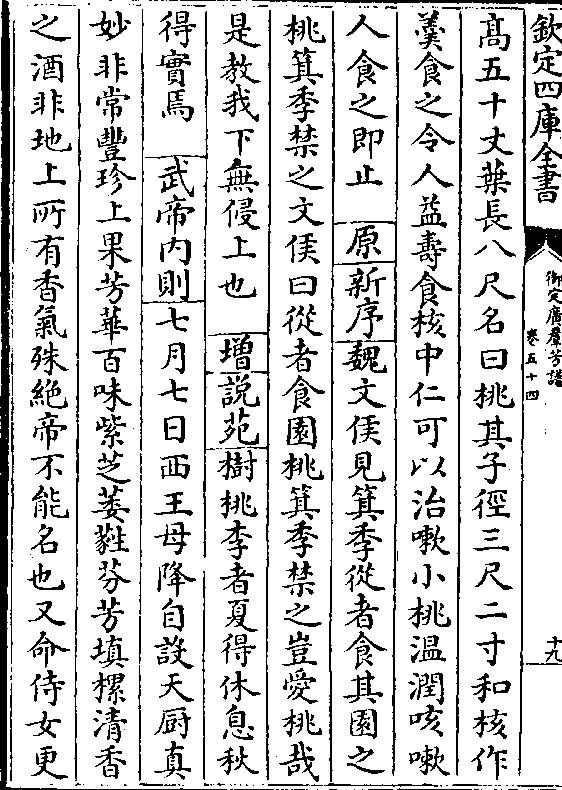 欽定四庫全書
御定廣羣芳譜
卷五十四
十九
高五十丈葉長八尺名曰桃其子徑三尺二寸和核作
羹食之令人益壽食核中仁可以治嗽小桃温潤咳嗽
人食之即止 原 新序 魏文侯見箕季從者食其園之
桃箕季禁之文侯曰從者食園桃箕季禁之豈愛桃哉
是教我下無侵上也 増 説苑 樹桃李者夏得休息秋
得實焉 武帝内則 七月七日西王母降自設天厨真
妙非常豐珍上果芳華百味紫芝萎蕤芬芳填樏清香
之酒非地上所有香氣殊絶帝不能名也又命侍女更